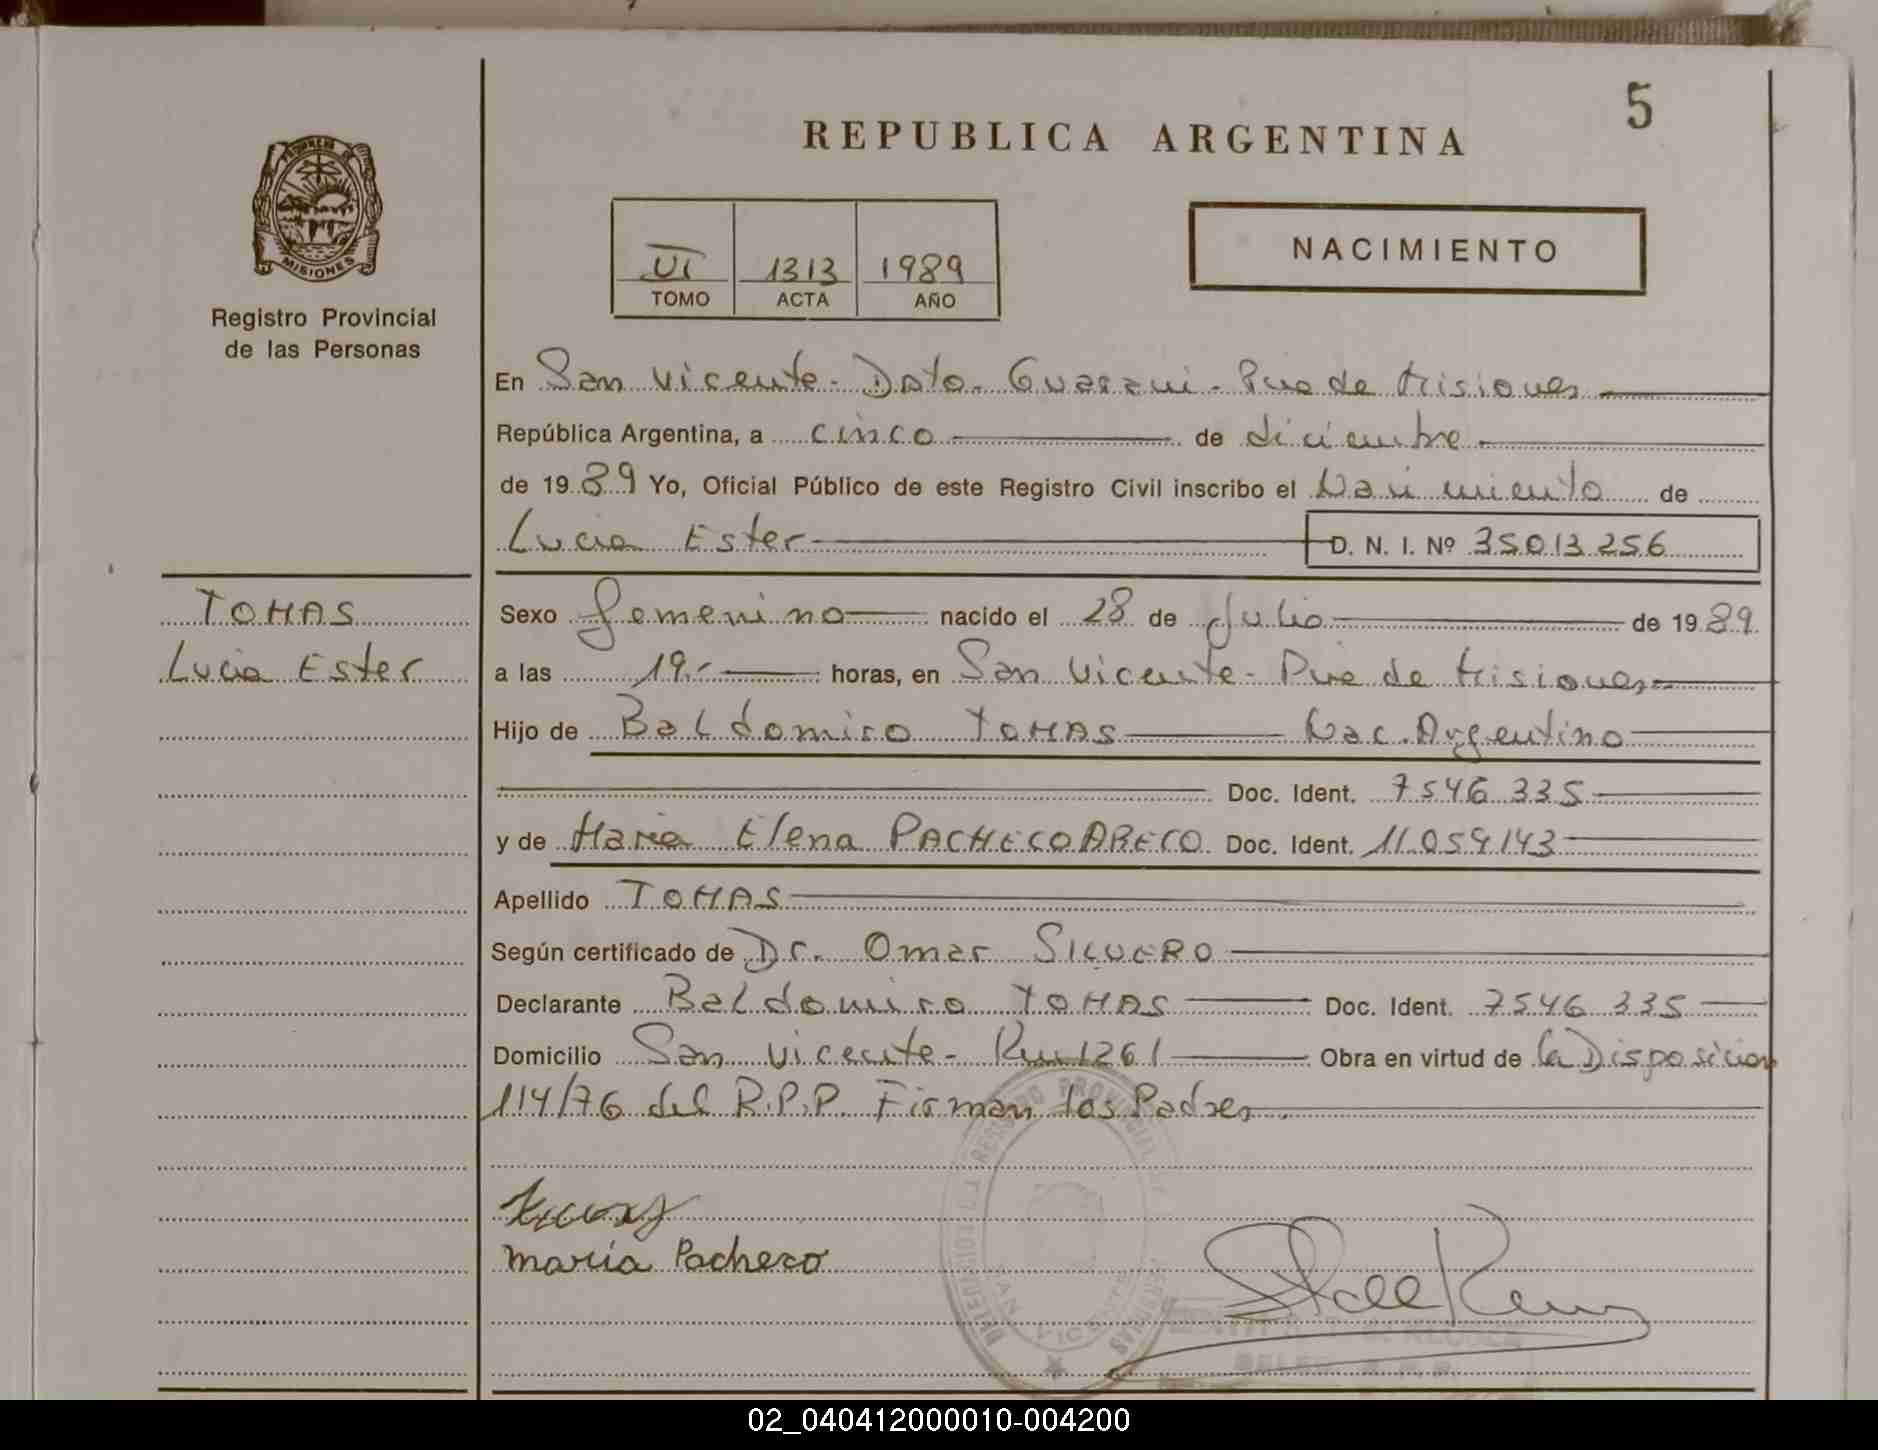 5
REPUBLICA ARGENTINA
PROVINCIA DE
MISIONES
Registro Provincial
de las Personas
VI 1313 1989
TOMO ACTA AÑO
NACIMIENTO
En San Vicente - Dpto. Guarani - Pcia de Misiones
República Argentina, a cinco de diciembre
de 1989 Yo, Oficial Público de este Registro Civil inscribo el Nacimiento de
Lucia Ester D. N. I. Nº 35013256
TOMAS
Lucia Ester
Sexo femenino nacido el 28 de Julio de 1989
a las 19.- horas, en San Vicente - Pcia de Misiones
Hijo de Baldomiro TOMAS Nac. Argentino
Doc. Ident. 7546335
y de Maria Elena PACHECO ARECO Doc. Ident. 11.059143
Apellido TOMAS
Según certificado de Dr. Omar SILVERO
Declarante Baldomiro TOMAS Doc. Ident. 7546335
Domicilio San Vicente - Km 1261 Obra en virtud de la Disposicion
114/76 del R.P.P. Firman los Padres
maria Pacheco
SAN VICENTE
02_040412000010-004200